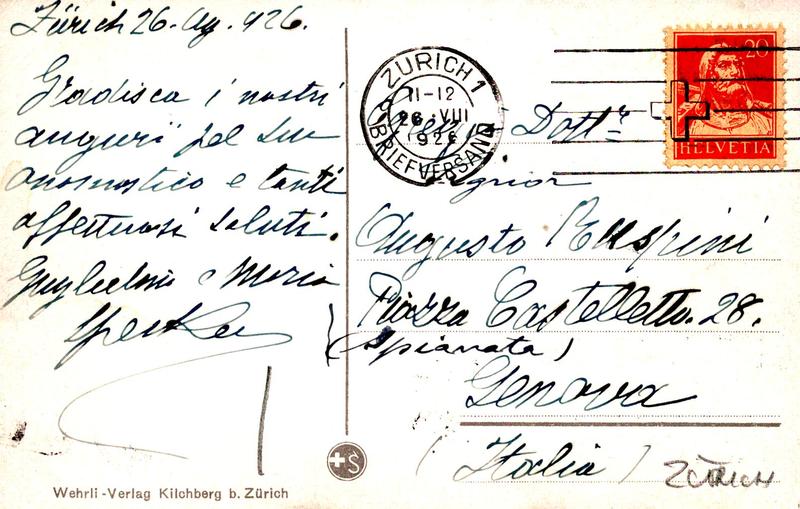 Zürich 26. Ag. 926.
Gradisca i nostri
auguri pel suo
onomastico e tanti
affettuosi saluti.
Guglielmo e Maria
ZÜRICH 1
11-12
26. VIII
1926
BRIEFVERSAND
20
HELVETIA
Dottr
Signor
Augusto Ruspini
Piazza Castelletto. 28.
(Spianata)
Genova
(Italia)
ZÜRICH
Wehrli-Verlag Kilchberg b. Zürich